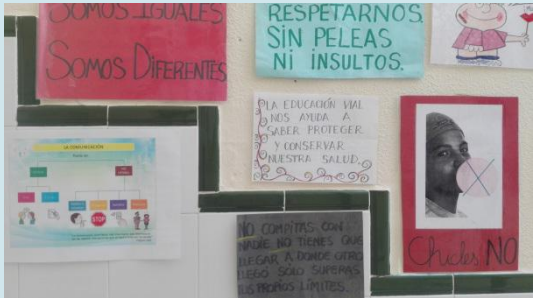 SOMOS IGUALES
SOMOS DIFERENTES
RESPETARNOS
SIN PELEAS
NI INSULTOS.
LA EDUCACIÓN VIAL
NOS AYUDA A
SABER PROTEGER
Y CONSERVAR
NUESTRA SALUD.
LA COMUNICACIÓN
STOP
NO COMPITAS CON
NADIE NO TIENES QUE
LLEGAR A DONDE OTRO
LLEGÓ SÓLO SUPERAS
TUS PROPIOS LÍMITES.
Chicles NO